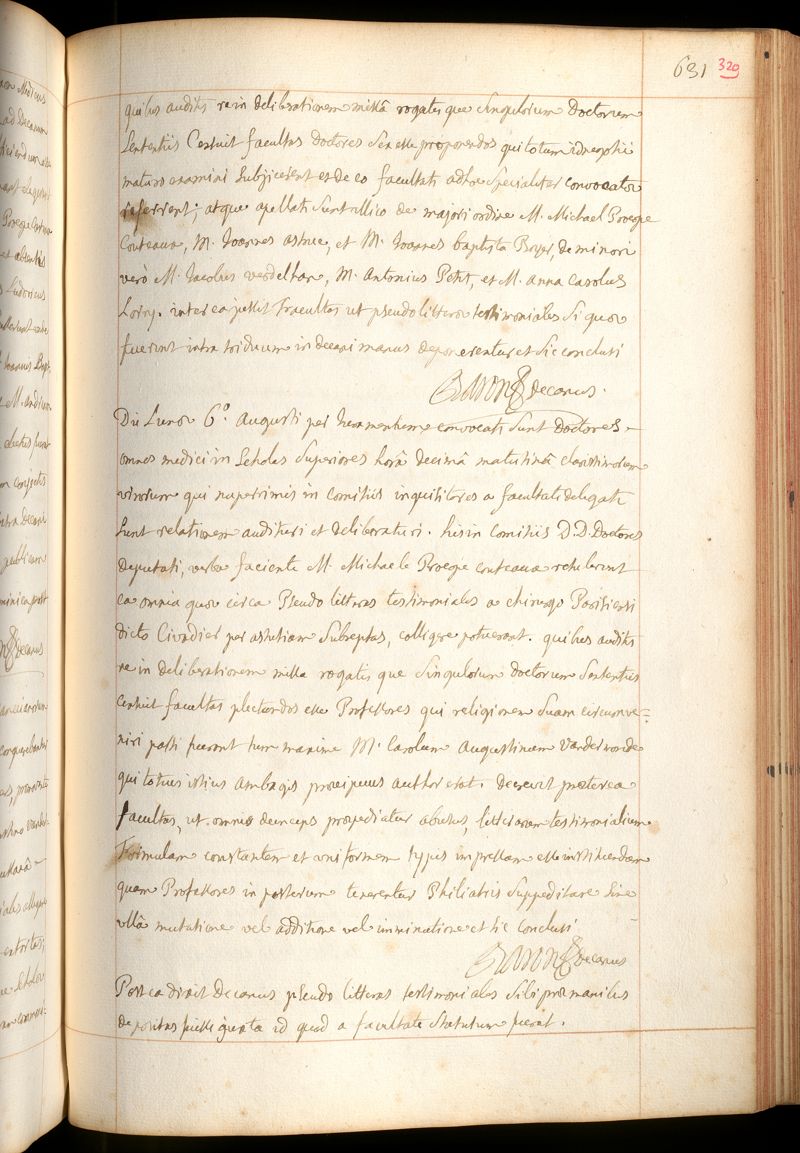 631 329
quibus auditis re in deliberationem missâ rogatisque singulorum Doctorum
sententiis Censuit facultas Doctores sex esse proponendos qui totum id negotii
maturo examini subjicerent et de eo facultati adhoc specialiter convocatæ
referrent; atque apellati sunt illico de majori ordine M. Michael Procope
Couteaux, M. Joannes astruc, et M. Joannes baptista Boyer, de minori
verò M. Jacobus verdelhan, M. Antonius Petit, et M. anna carolus
Lorry. interea jussit Facultas ut pseudo litteræ testimoniales si quæ
fuerint intra triduum in decani manus deponerentur et sic conclusi
Baron Decanus.
Die Lunæ 6â. Augusti per Juramentum convocati sunt Doctores
omnes medici in Scholas Superiores horâ decimâ matutinâ clarissimorum
virorum qui nuperrimis in comitiis inquisitores a facultate delegati
sunt relationem audituri et deliberaturi. his in comitiis D.D. Doctores
deputati, verba faciente M. Michaele Procope couteaux retulerunt
ea omnia quæ circa Pseudo litteras testimoniales a chirurgo Parisiensi
dicto Civadier per astutiam subreptas, colligere potuerant. quibus auditis
re in deliberationem missa rogatisque singulorum doctorum sententiis
censuit facultas plectendos esse Professores qui religionem suam circumve-
niri passi fuerant tum maxime M. Carolum Augustinum Vandermonde
qui totius istius ambagis præcipuus author erat. decrevit præterea
facultas, ut omnis deinceps præpediatur abusus, litterarum testimonialium
Formulam constantem et uniformem typis impressam esse instituendam
quam Professores in posterum tenerentur Philiatris suppeditare sine
ullâ mutatione vel additione vel imminutione et sic conclusi
Baron Decanus
Postea dixit Decanus pseudo litteras testimoniales sibi præ manibus
depositas fuisse juxta id quod a facultate statutum fuerat.